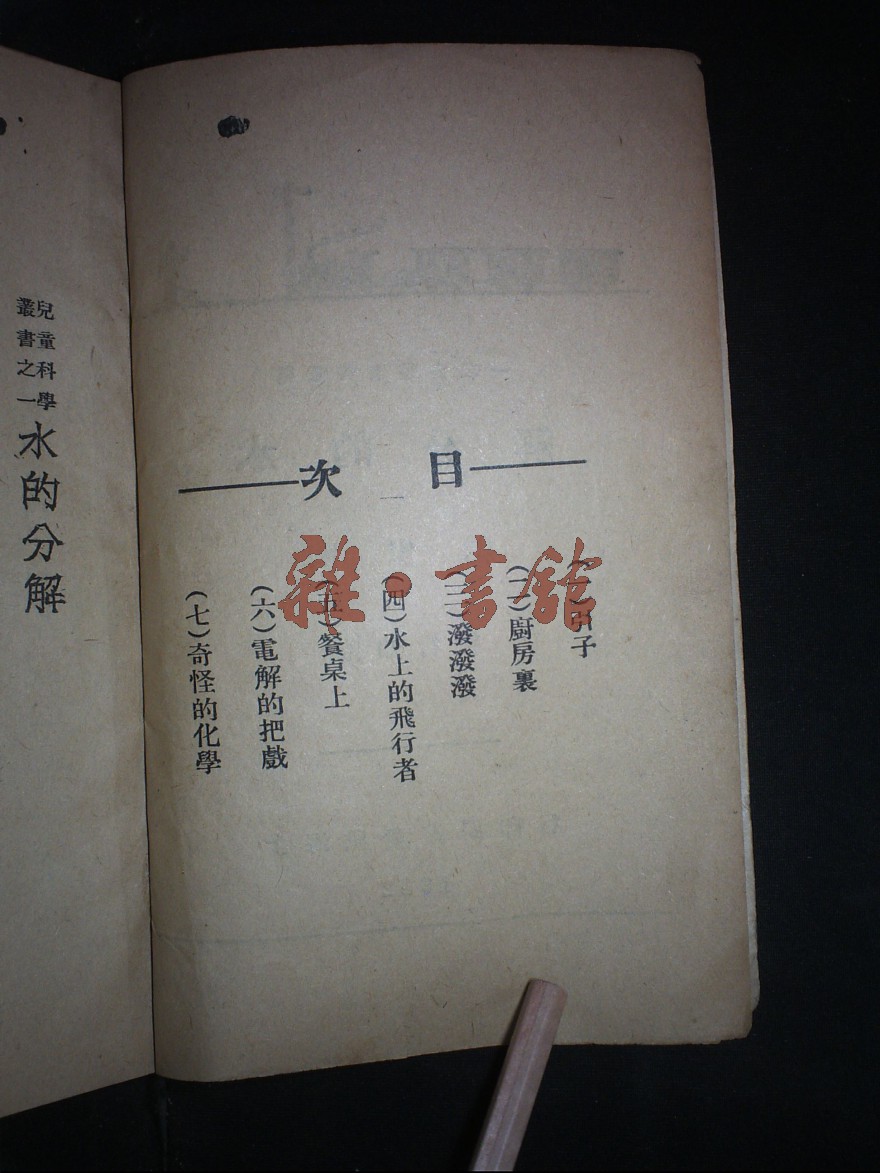 目次
(一)引子
(二)廚房裏
(三)潑潑潑
(四)水上的飛行者
(五)餐桌上
(六)電解的把戲
(七)奇怪的化學
兒童科學
叢書之一
水的分解
雜·書館